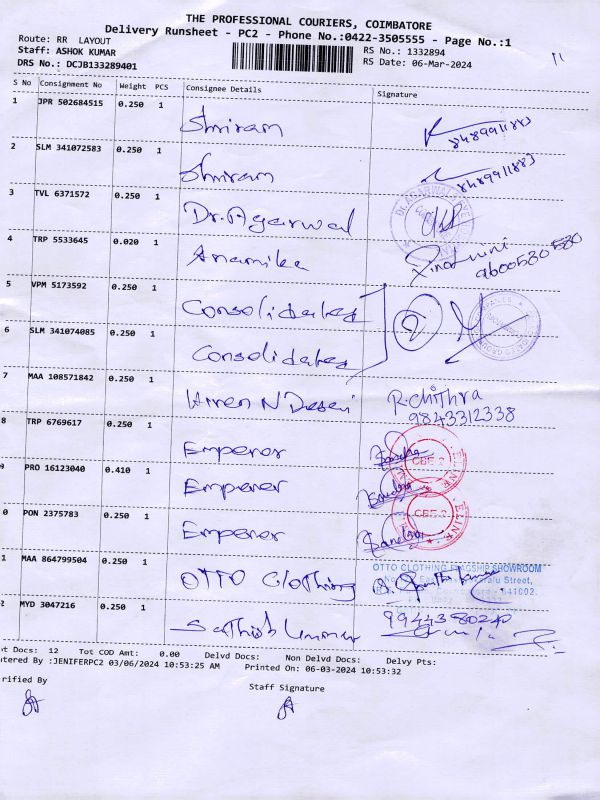 THE PROFESSIONAL COURIERS, COIMBATORE
Delivery Runsheet - PC2 - Phone No.:0422-3505555 - Page No.:1
Route: RR LAYOUT
Staff: ASHOK KUMAR
DRS No.: DCJB133289401
RS No.: 1332894
RS Date: 06-Mar-2024
11
S No Consignment No Weight PCS Consignee Details Signature
1 JPR 502684515 0.250 1 Shriram 8489911883
2 SLM 341072583 0.250 1 Shriram 8489911883
3 TVL 6371572 0.250 1 Dr. Agarwal
4 TRP 5533645 0.020 1 Anamika 9600580580
5 VPM 5173592 0.250 1 Consolidated
6 SLM 341074085 0.250 1 Consolidated 2
7 MAA 108571842 0.250 1 Hiren N Desai R. Chithra
9843312338
8 TRP 6769617 0.250 1 Emperor CBE-2
9 PRO 16123040 0.410 1 Emperor
0 PON 2375783 0.250 1 Emperor CBE-2
1 MAA 864799504 0.250 1 OTTO Clothing OTTO CLOTHING FLAGSHIP SHOWROOM
Street,
641002.
2 MYD 3047216 0.250 1 Sathish kumar 9944380240
t Docs: 12 Tot COD Amt: 0.00 Delvd Docs: Non Delvd Docs: Delvy Pts:
tered By :JENIFERPC2 03/06/2024 10:53:25 AM Printed On: 06-03-2024 10:53:32
rified By Staff Signature